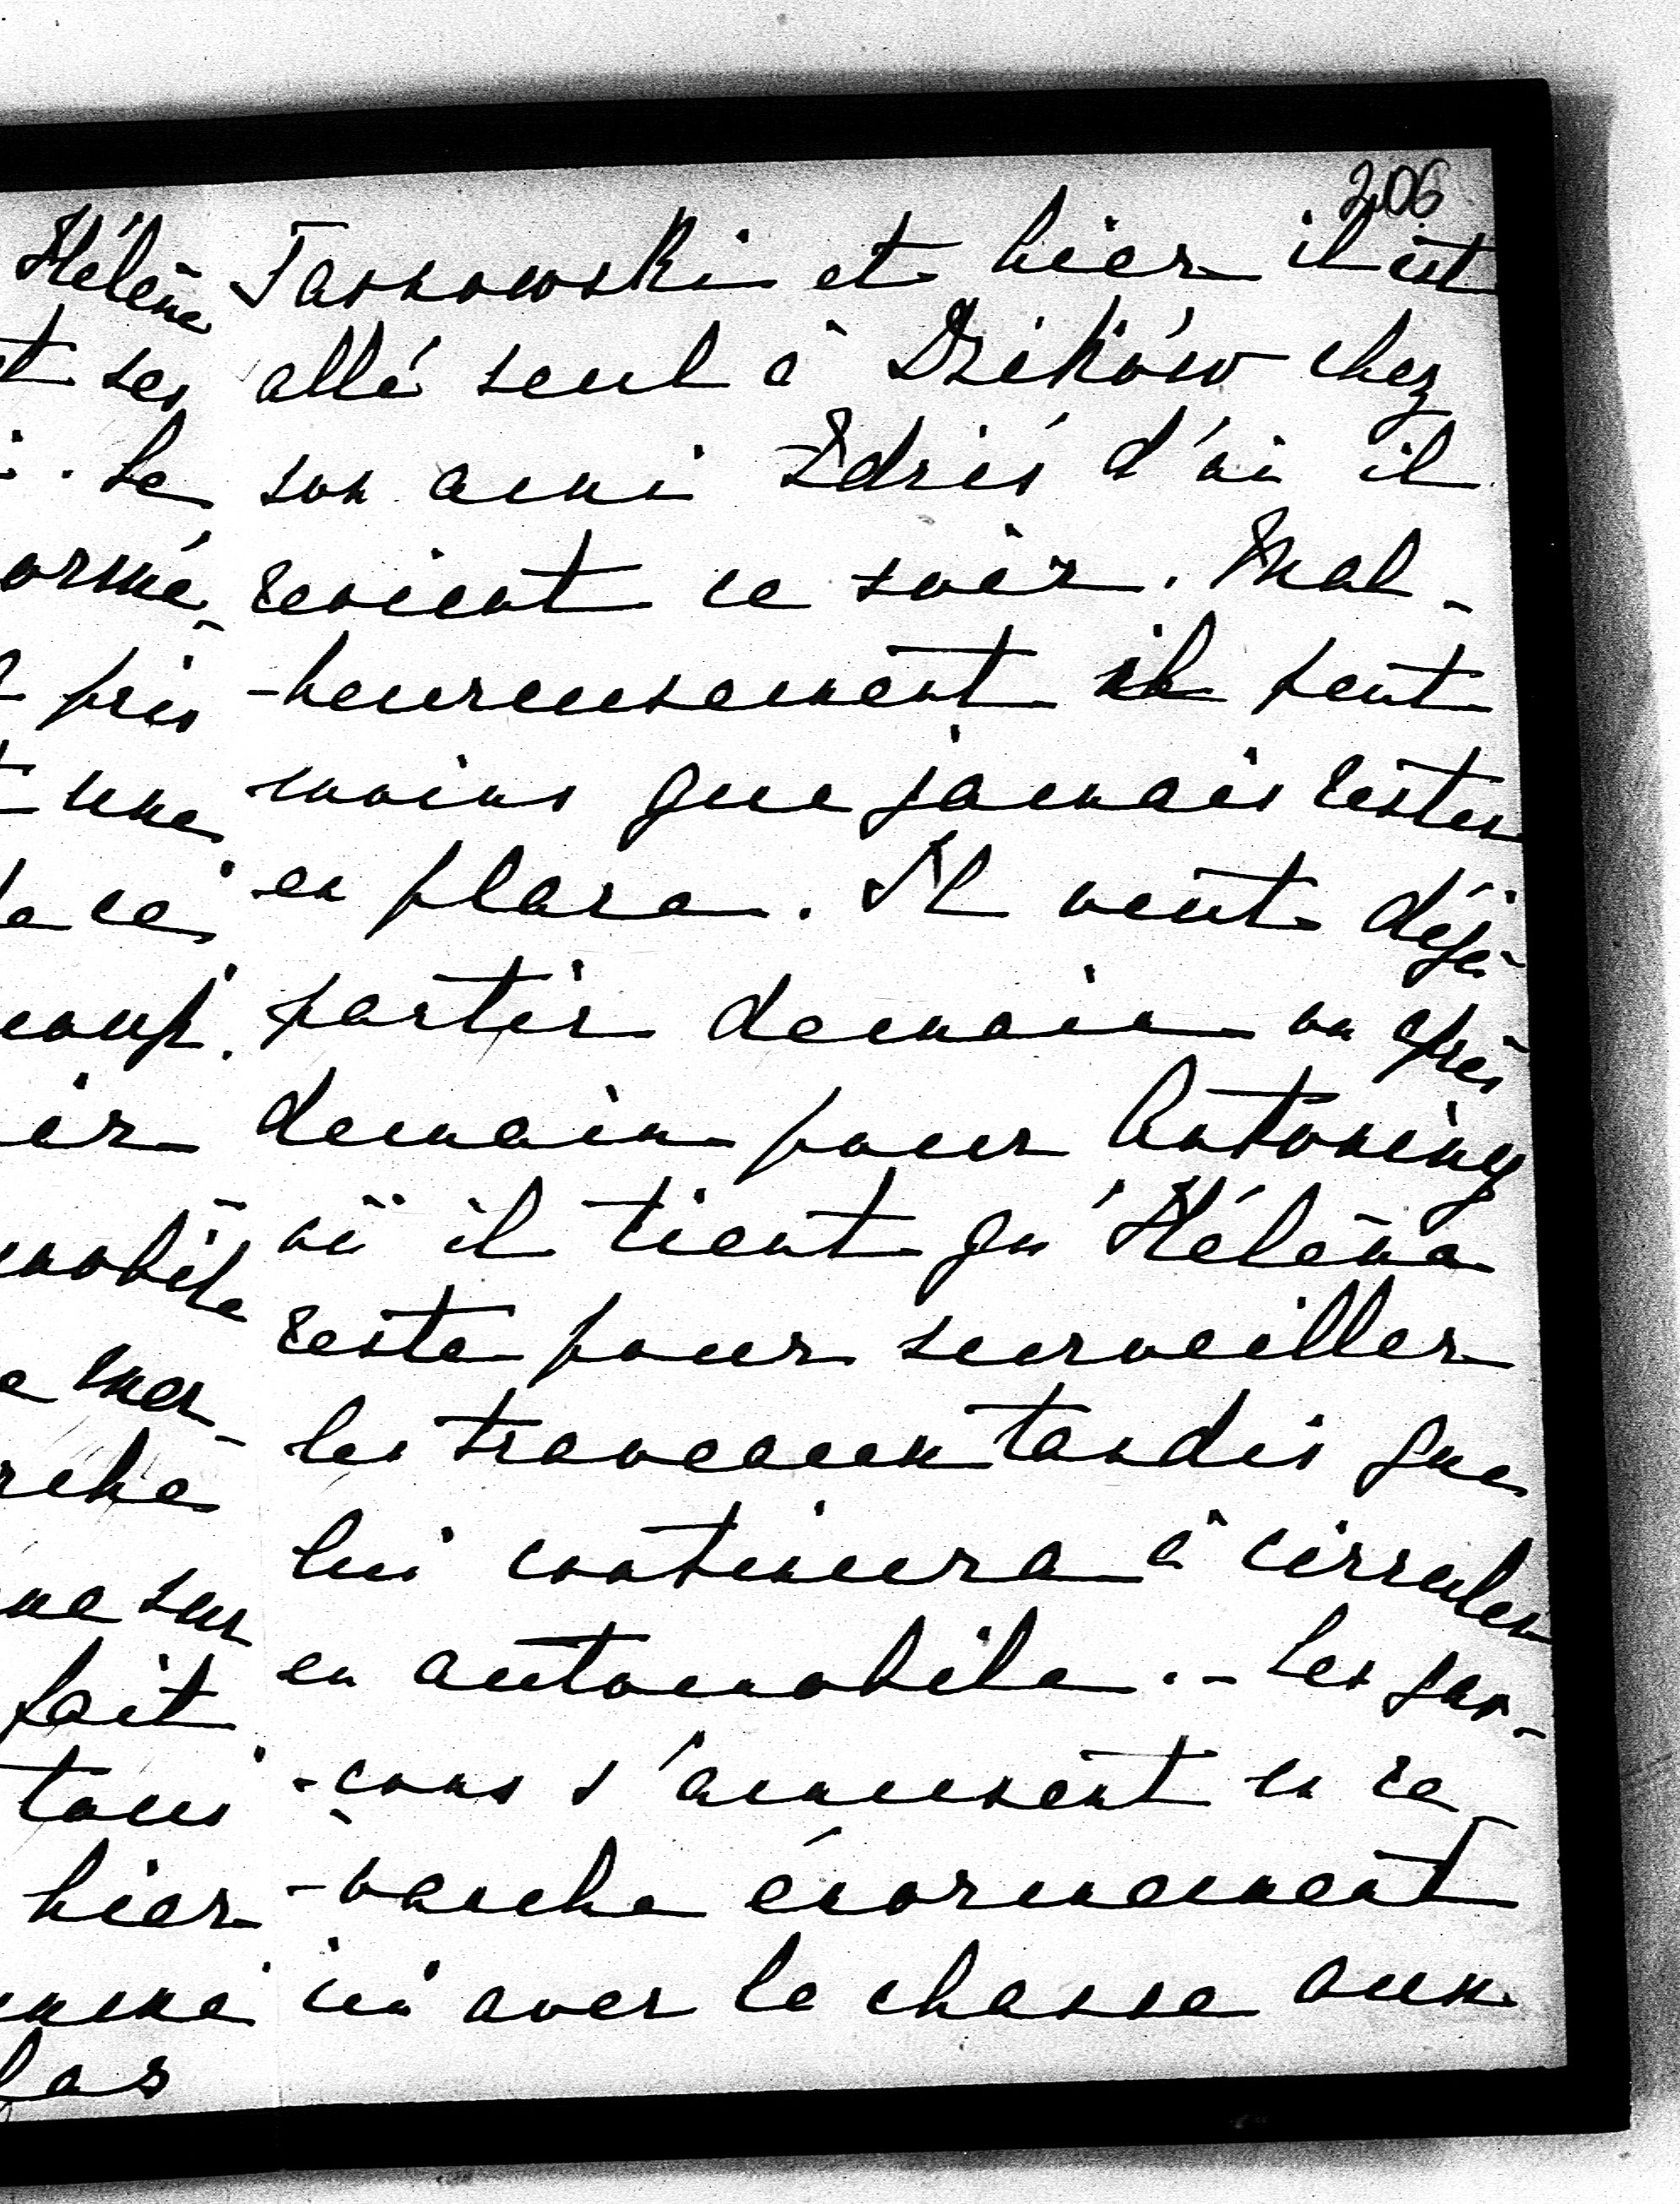 206
Hélène
t ses
. Le
ormé-
pris
t une
ce
coup.
ir
mobile
e mer-
rche
ne sur
fait
tous
hier
pas
Tarnowski et hier il est
allé seul à Dzików chez
son ami Zdziś d'où il
revient ce soir. Mal-
-heureusement il peut
moins que jamais rester
en place. Il veut déjà
partir demain ou après
demain pour Antoniny
où il tient qu'Hélène
reste pour surveiller
les travaux tandis que
lui continuera à circuler
en automobile. - Les gar-
-çons s'amusent en re-
-vanche énormément
ici avec la chasse aux